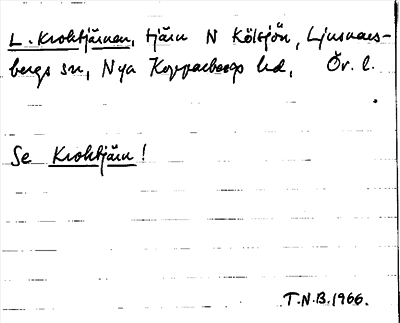 L. Kroktjärnen, tjärn N Kölsjön, Ljusnars-
bergs sn, Nya Kopparbergs hd, Ör. l.
Se Kroktjärn!
T.N.B. 1966.